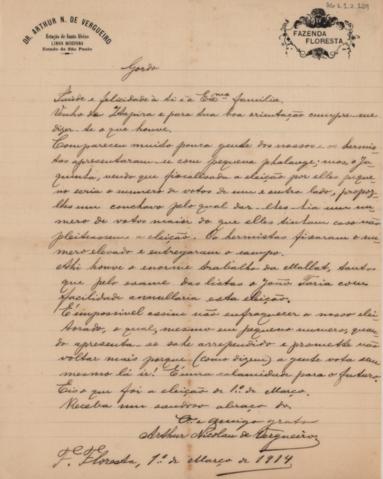 AG 2.1.2.289
DR. ARTHUR N. DE VERGUEIRO
Estação de Santa Ursula
LINHA MOGYANA
Estado de São Paulo
FAZENDA
FLORESTA
Gordo
Saúde e felicidade à ti e à Exma familia.
Venho da Itapira e para tua boa orientação cumpre-me
dizer-te o que houve.
Compareceu muito pouca gente dos nossos e os hermis-
tas apresentaram-se com pequena phalange; mas o Ja-
quinta, vendo que fiscalisada a eleição por elles peque-
no seria o numero de votos de um e outro lado, propoz-
lhes um conchavo pelo qual dar-lhes-ia um nu-
mero de votos maior do que elles tinham caso não
pleiteassem a eleição. Os hermistas fixaram o nu-
mero elevado e entregaram o campo.
Ahi houve o enorme trabalho da Mallat, tantos
que pelo exame das listas o João Faria com
facilidade annullaria esta eleição.
É impossivel assim não enfraquecer o nosso elei-
torado, o qual, mesmo em pequeno numero, quan-
do apresenta-se sahe arrependido e promette não
voltar mais porque (como dizem) a gente vota sem
mesmo lá ir! É uma calamidade para o futuro.
Eis o que foi a eleição de 1º de Março.
Receba um saudoso abraço do
amigo grato
Arthur Nicolau de Vergueiro
F. Floresta, 1º de Março de 1914.